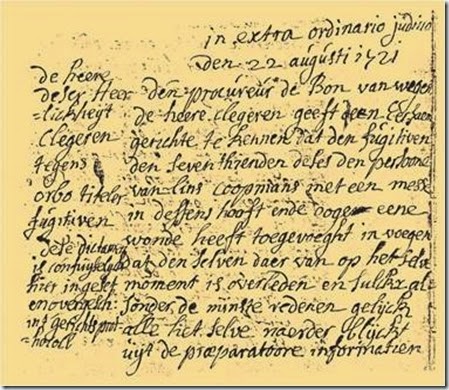 in extra ordinario judicio
den 22 augusti 1721
de heere
deser Heer
=lickheyt
Clegeren
tegens
titeler
fugitiven
Dese
is
hier ingeset
en overgesch:
in 't gerichts prot-
=hocoll
den procureur de Bon van wegen
de heere clegeren geeft deen Eersaem
gerichte te kennen dat den fugitiven
den seventhienden deses den persoone
van Lins Coopmans met een mesz
in dessens hooft ende ooge eene
wonde heeft toegevoeght in voegen
dat den selven daer van op het selve
moment is overleden en sulckx als
sonder de minste redenen gelyck
alle het selve naerder blyckt
uyt de præparatoore informatien